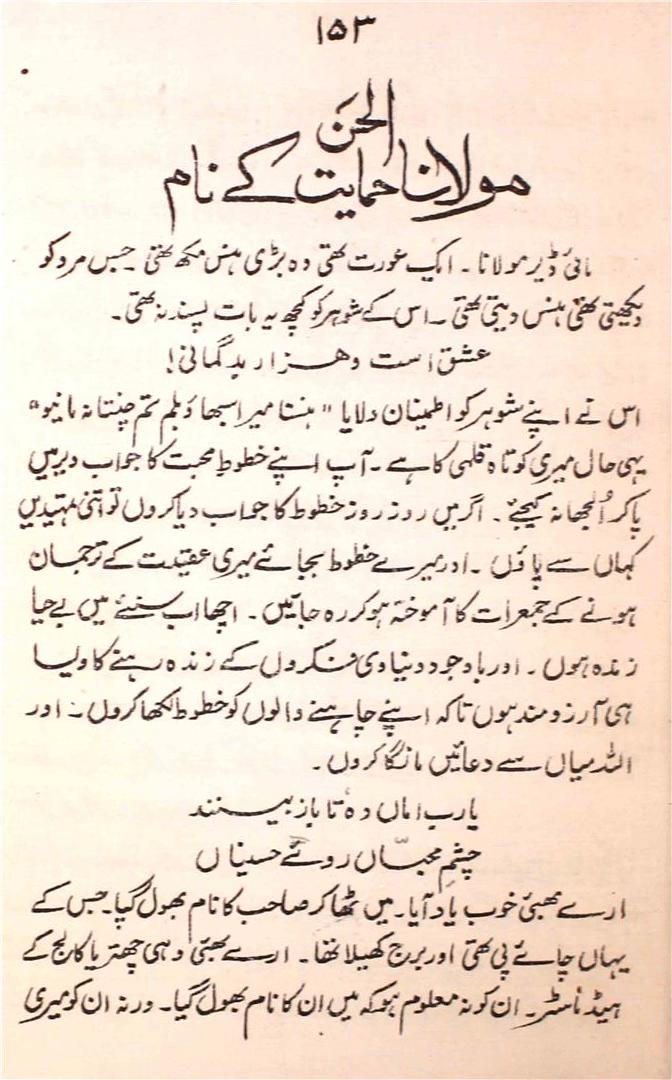 ۱۵۳
مولانا حمایت الحسن کے نام
مائی ڈیر مولانا ۔ ایک عورت تھی وہ بڑی ہنس مکھ تھی ۔ جس مرد کو
دیکھتی تھی ہنس دیتی تھی ۔ اس کے شوہر کو کچھ یہ بات پسند نہ تھی ۔
عشق است و ہزار بدگمانی !
اس نے اپنے شوہر کو اطمینان دلایا " ہنسنا میرا سبھاؤ بلم تم چنتا نہ مانیو "
یہی حال میری کوتاہ قلمی کا ہے ۔ آپ اپنے خطوطِ محبت کا جواب دیر میں
پا کر اُلجھا نہ کیجئے ۔ اگر میں روز روز خطوط کا جواب دیا کروں تو اتنی تمہیدیں
کہاں سے پاؤں ۔ اور میرے خطوط بجائے میری عقیدت کے ترجمان
ہونے کے جمعرات کا آموختہ ہو کر رہ جائیں ۔ اچھا اب سنیئے میں بے حیا
زندہ ہوں ۔ اور باوجود دنیاوی فکروں کے زندہ رہنے کا ویسا
ہی آرزومند ہوں تاکہ اپنے چاہنے والوں کو خطوط لکھا کروں ۔ اور
اللہ میاں سے دعائیں مانگا کروں ۔
یارب اماں دہ تا باز بینند
چشمِ محبّاں روئے حسیناں
ارے بھئی خوب یاد آیا ۔ میں ٹھاکر صاحب کا نام بھول گیا ۔ جس کے
یہاں چائے پی تھی اور برج کھیلا تھا ۔ ارے بھئی وہی چھتریا کالج کے
ہیڈ ماسٹر ۔ ان کو نہ معلوم ہو کہ میں ان کا نام بھول گیا ۔ ورنہ ان کو میری